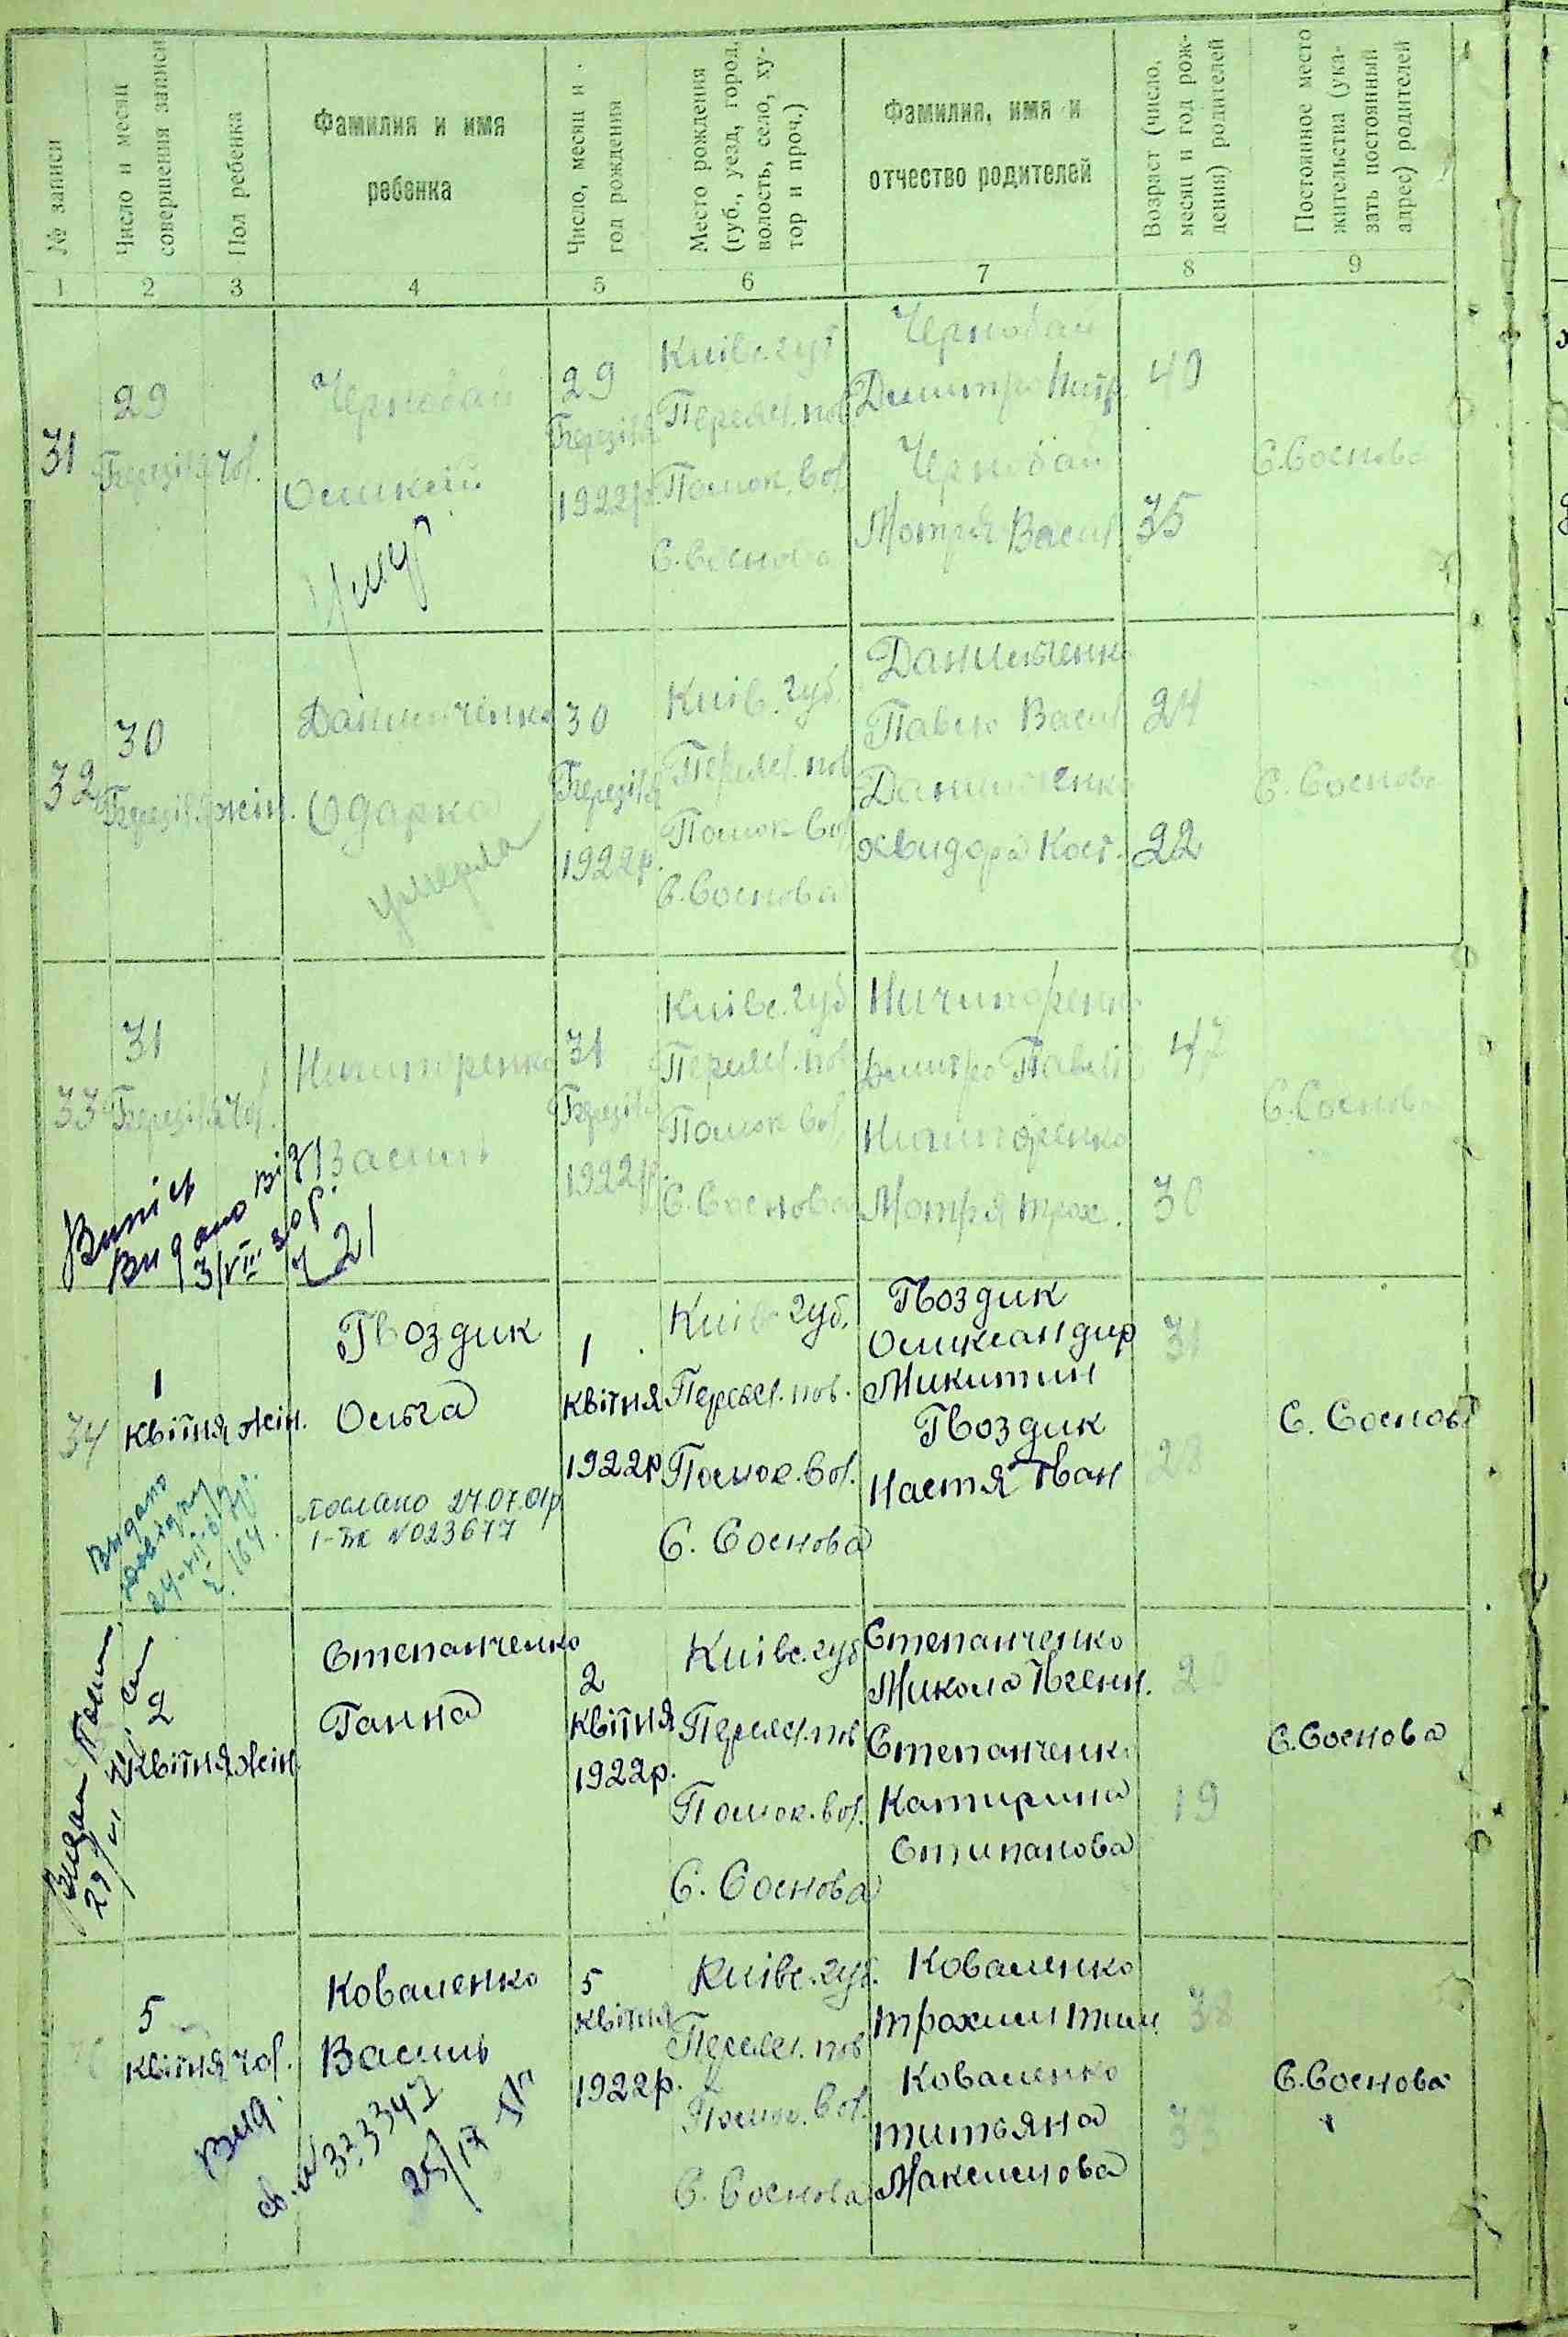 № записи
Число и месяц
совершения записи
Пол ребенка
Фамилия и имя
ребенка
Число, месяц и
год рождения
Место рождения
(губ., уезд, город,
волость, село, ху-
тор и проч.)
Фамилия, имя и
отчество родителей
Возраст (число,
месяц и год рож-
дения) родителей
Постоянное место
жительства (ука-
зать постоянный
адрес) родителей
1 2 3 4 5 6 7 8 9
31
29
Березіля
чол.
Чернобай
Оликсій
29
Березіля
1922р.
Київс. губ
Переясл. пов
Помок. вол
С. Соснова
Чернобай
Димитро Митр.
Чернобай
Мотря Васил.
40
35
С. Соснова
32
30
Березіля
жін.
Данильченко
Одарка
умерла
30
Березіля
1922р.
Київ. губ.
Переясл. пов
Помок вол
С. Соснова
Данильченко
Павло Васил
Данильченко
Хвидора Кост.
24
22
С. Соснова
33
31
Березіля
чол.
Ничипоренко
Василь
31
Березіля
1922р.
Київс. губ
Переясл. пов
Помок вол
С. Соснова
Ничипоренко
Димитро Павло
Ничипоренко
Мотря Трох.
47
30
С. Соснова
Випис
Видано
3/VII 30р.
ч 21
34
1
Квітня
жін.
Гвоздик
Ольга
послано 24.07.01р
І-БК №023677
1
Квітня
1922р
Київ губ.
Переясл. пов.
Помок. вол.
С. Соснова
Гвоздик
Оликсандир
Микитин
Гвоздик
Настя Іван
31
28
С. Соснова
Видано
довідку
164
2
Квітня
жін.
Степанченко
Ганна
2
Квітня
1922р.
Київс. губ
Переясл. пов
Помок. вол.
С. Соснова
Степанченко
Микола Євгени.
Степанченко
Катирина
Стипанова
20
19
С. Соснова
5
Квітня
чол.
Коваленко
Василь
5
Квітня
1922р.
Київс. губ.
Переясл. пов
Помок. вол.
С. Соснова
Коваленко
Трохим Тим.
Коваленко
Титьяна
Максимова
38
33
С. Соснова
Вид.